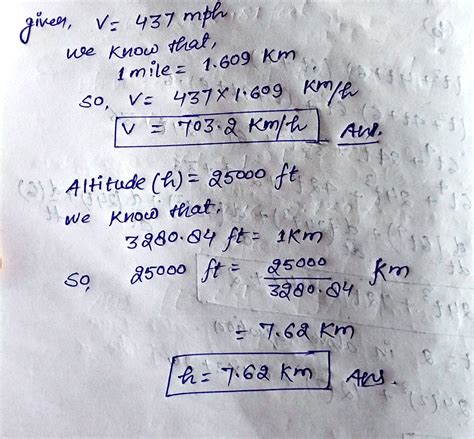 given, V = 437 mph
we know that,
1 mile = 1.609 Km
so, V = 437 × 1.609 Km/h
V = 703.2 Km/h Ans.
Altitude (h) = 25000 ft
we know that,
3280.84 ft = 1 Km
so, 25000 ft = 25000 / 3280.84 Km
= 7.62 Km
h = 7.62 Km Ans.